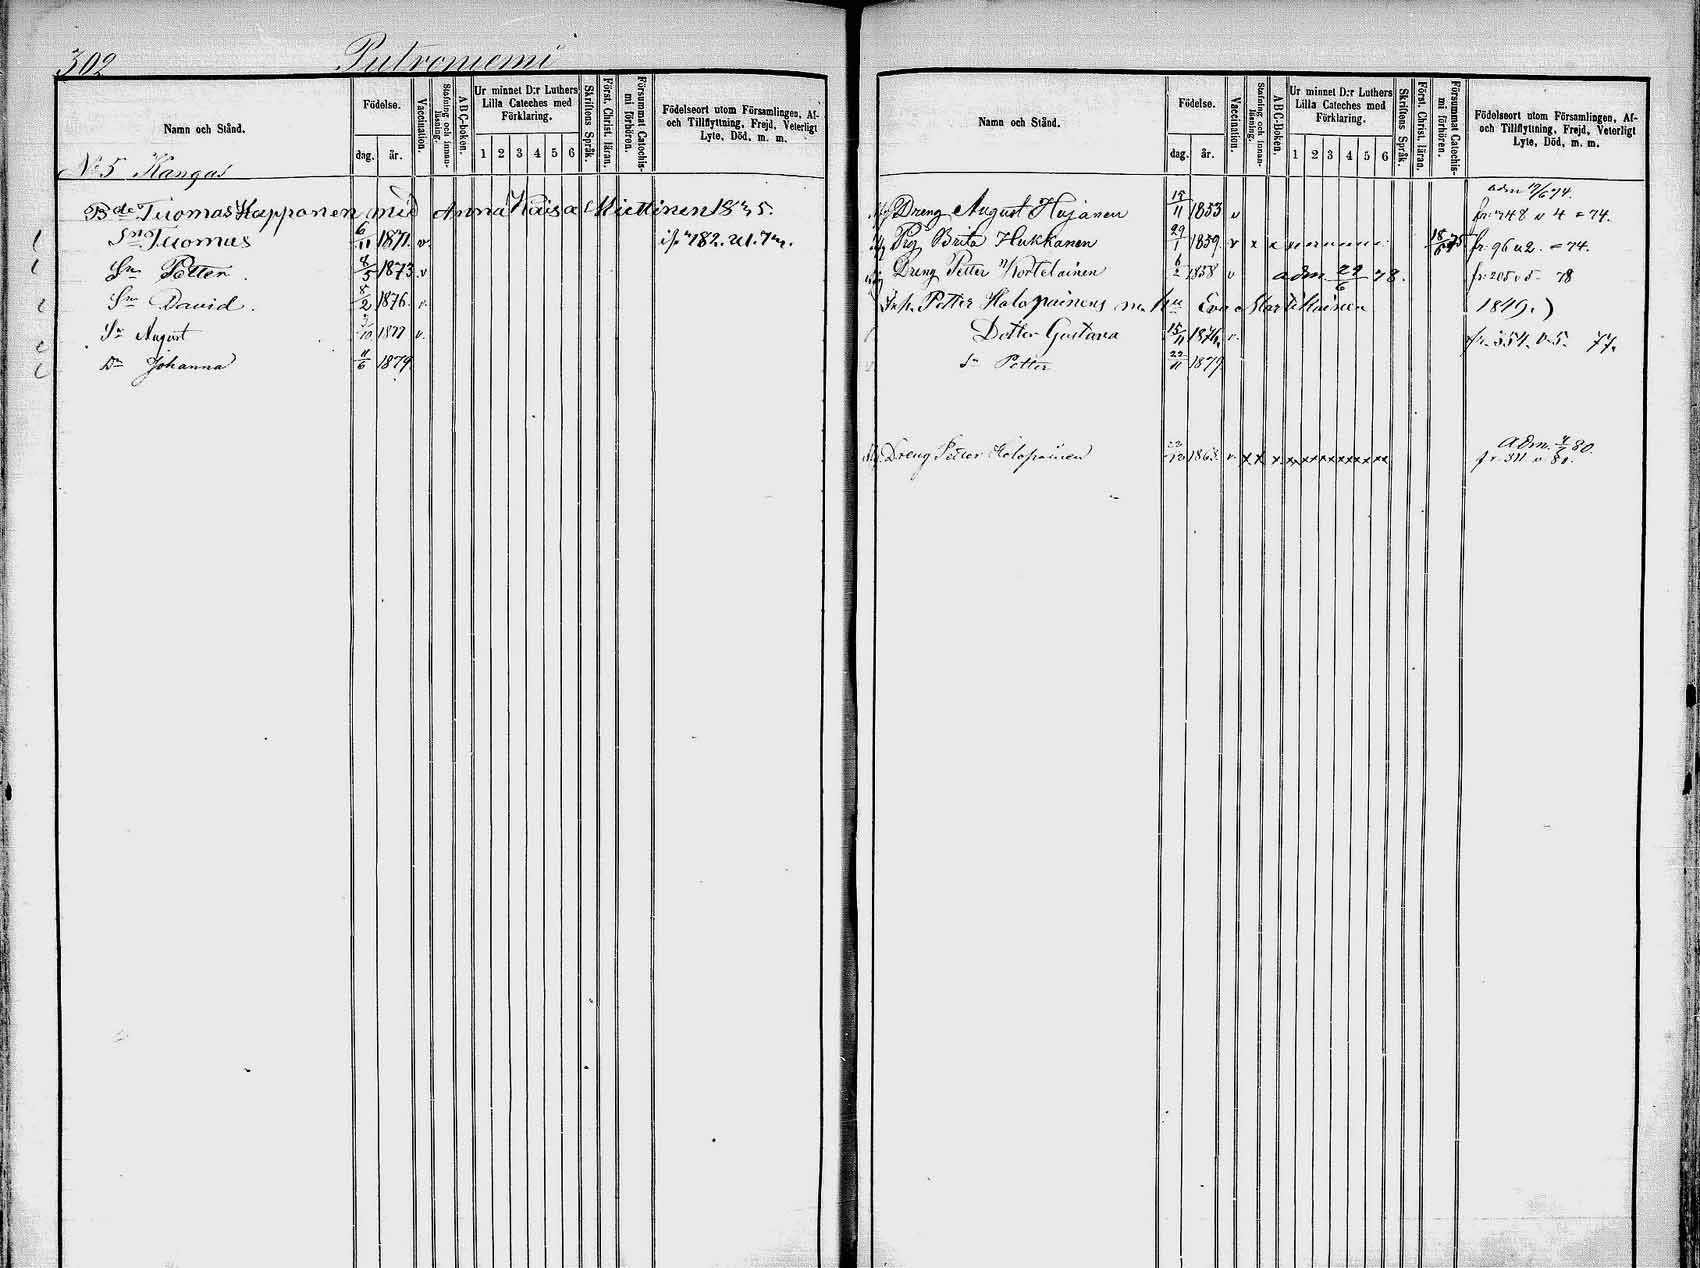 302 Putroniemi
Namn och Stånd.
Födelse.
dag. år.
Vaccination.
Stafning och innan-läsning.
A B C-boken.
Ur minnet D:r Luthers
Lilla Cateches med
Förklaring.
1 2 3 4 5 6
Skriftens Språk.
Först. Christ. läran.
Försummat Catechis-
mi förhören.
Födelseort utom Församlingen, Af-
och Tillflyttning, Frejd, Veterligt
Lyte, Död, m. m.
No 5 Kangas
Bde Tuomas Kapponen med Anna Kaisa Miettinen
Sn Tuomas 6/11 1871. v.
Sn Petter 8/5 1873 v
Sn David. 8/2 1876. v.
Sn August /10 1877 v.
Dr Johanna 11/6 1879.
Namn och Stånd.
Födelse.
dag. år.
Vaccination.
Stafning och innan-läsning.
A B C-boken.
Ur minnet D:r Luthers
Lilla Cateches med
Förklaring.
1 2 3 4 5 6
Skriftens Språk.
Först. Christ. läran.
Försummat Catechis-
mi förhören.
Födelseort utom Församlingen, Af-
och Tillflyttning, Frejd, Veterligt
Lyte, Död, m. m.
Dreng August Hujanen 15/11 1853 v fr. 748 v 4 = 74.
Pig Brita Hukkanen 29/1 1859. v x x fr. 96 v 2. = 74.
Dreng Petter Kortelainen 6/2 1858 v adm 22/6 78. fr. 205 v 5 78
Inh. Petter Holopainens m. hu Eva Martikainen 1849.)
Dotter Gustava 15/11 1876. v. fr. 354. v. 5. 77.
Sn Petter 22/11 1879.
Adm. 80.
Dreng Petter Holopainen v. x x x x x x x x x x x fr. 311 v. 80.